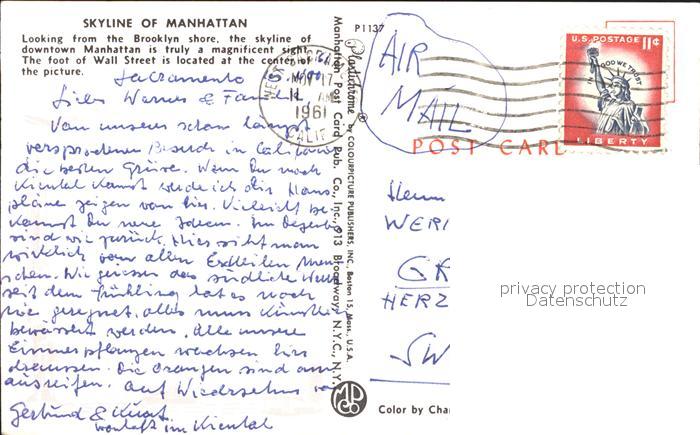 SKYLINE OF MANHATTAN
Looking from the Brooklyn shore, the skyline of
downtown Manhattan is truly a magnificent sight.
The foot of Wall Street is located at the center of
the picture.
Sacramento
Lieber Werner & Fam.
Von unserem schon längst
versprochenen Besuch in Californ
die besten Grüsse. Wenn Du nach
Kiental kannst werde ich dir Haus
pläne zeigen von hier. Vielleicht be-
kommst Du neue Ideen. Im Dezember
sind wir zurück. Hier sieht man
wirklich von allen Erdteilen Men
schen. Wir geniessen das südliche
seit dem Frühling hat es noch
nie geregnet, alles muss künstlich
bewässert werden. Alle unsere
Zimmerpflanzen wachsen hier
draussen. Die Orangen sind am
ausreifen. Auf Wiedersehn
Gertrud & Kurt
im Kiental
NOV 17
1961
CALIF
Plastichrome® by COLOURPICTURE PUBLISHERS, INC., Boston 15, Mass., U.S.A.
Manhattan Post Card Pub. Co., Inc., 913 Broadway, N.Y.C., N.Y.
MPC
Co
P1137
AIR
MAIL
U.S. POSTAGE 11¢
IN GOD WE TRUST
LIBERTY
POST CARD
Herrn
WER
GR
HERZ
SW
privacy protection
Datenschutz
Color by Cha